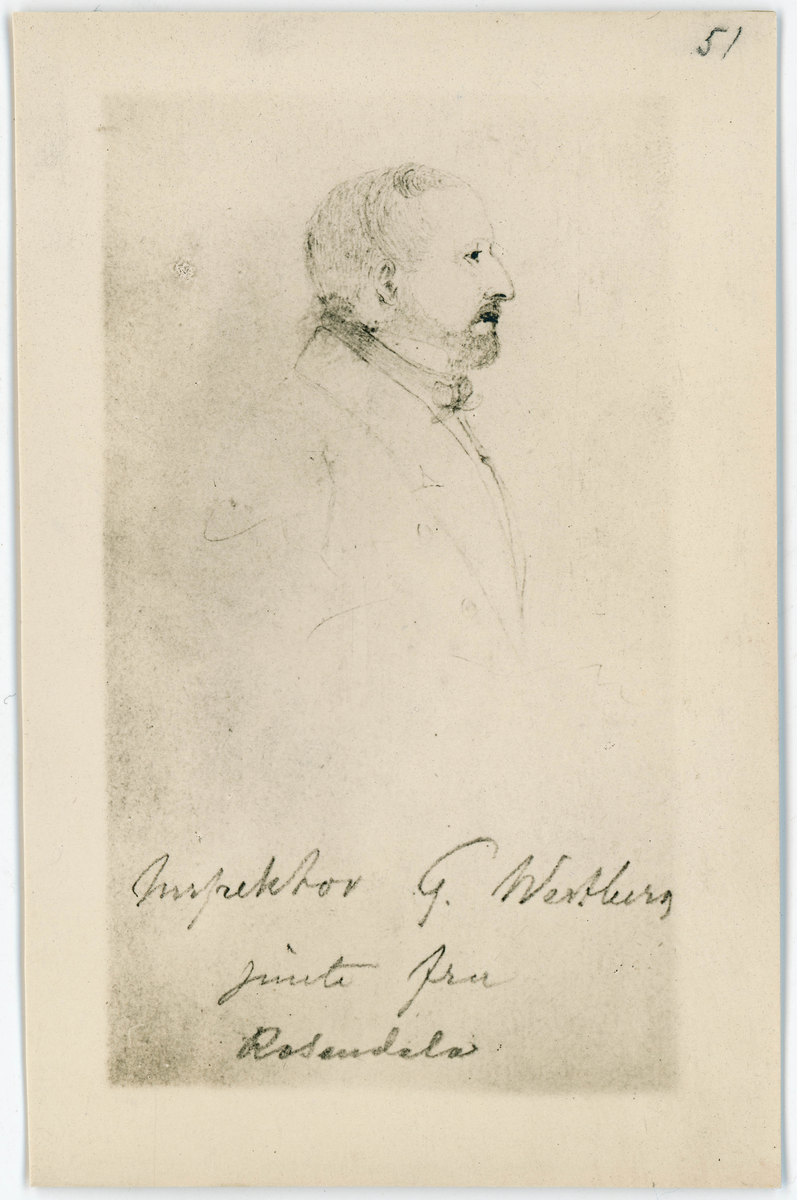 51
Inspektor G. Westberg
jemte fru
Rosendala